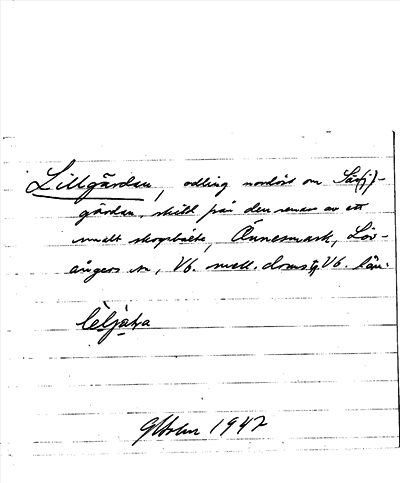 Lillgårdan, odling nordöst om Sä(j)-
gårdan, skild från den senare av ett
smalt skogsbälte, Önnesmark, Löv-
ångers sn, Vb. mell. doms. Vb. län.
1947